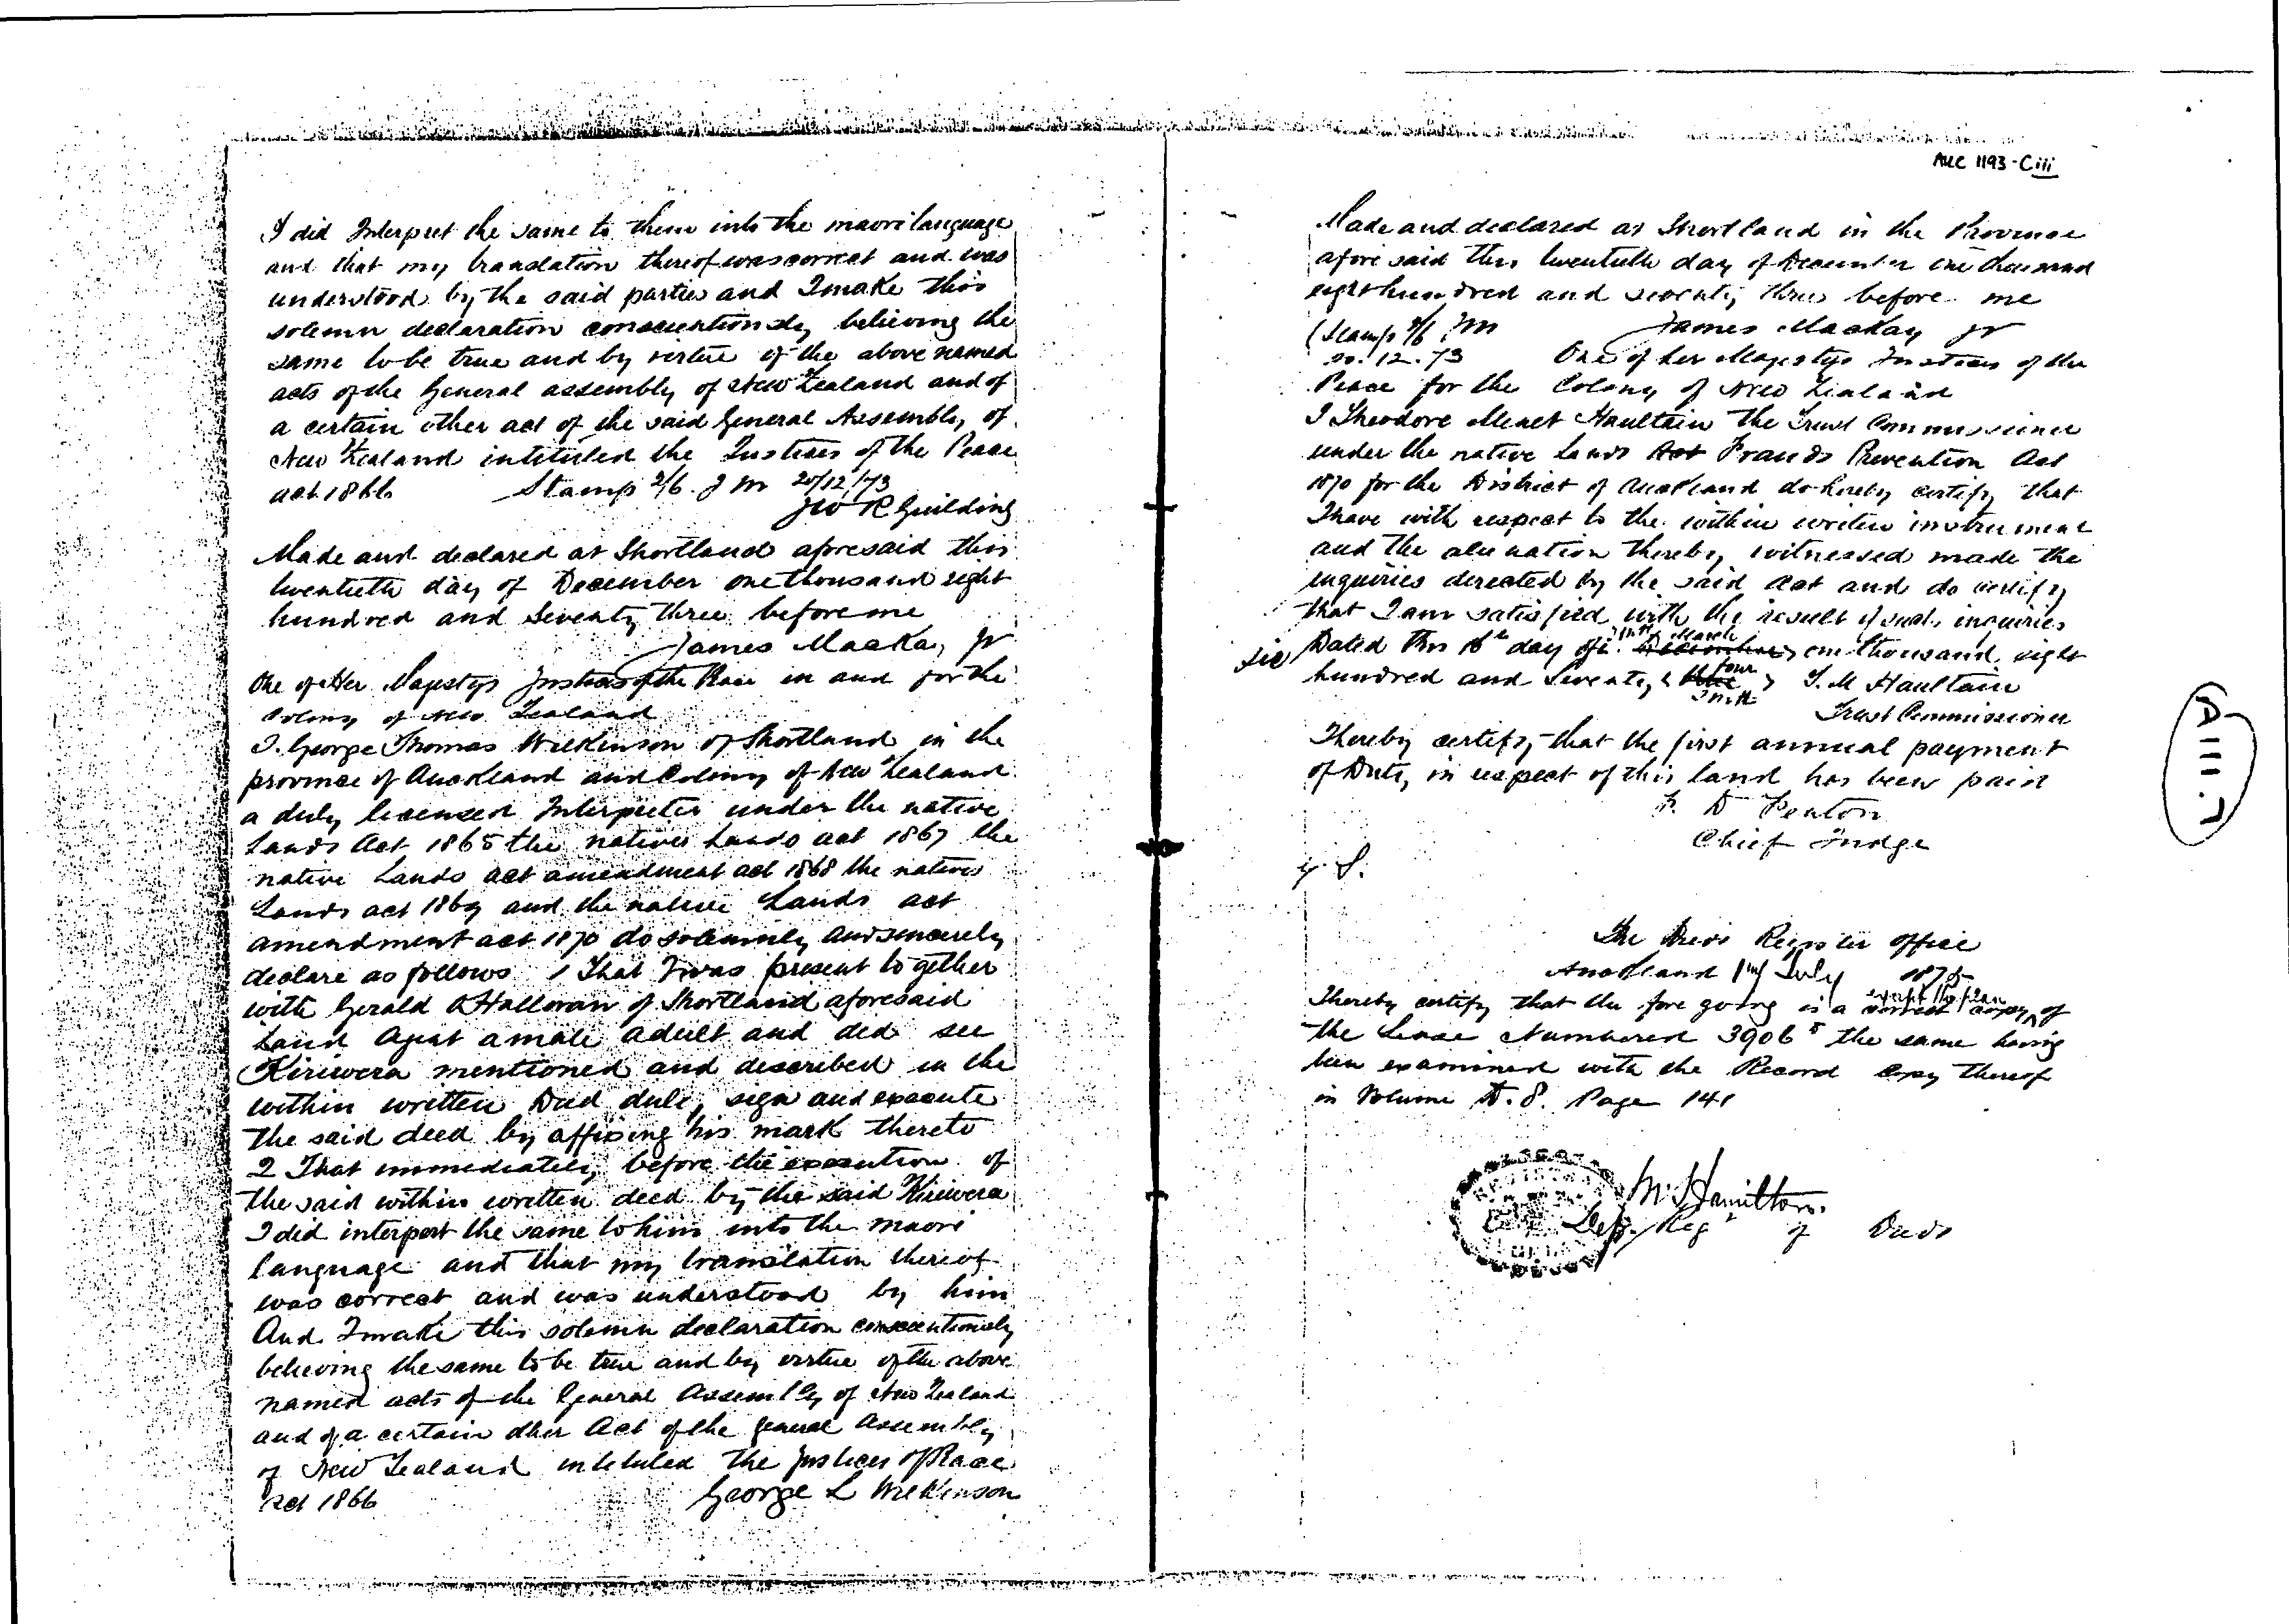 I did Interpret the same to them into the maori language
and that my translation thereof was correct and was
understood by the said parties and I make this
solemn declaration conscientiously believing the
same to be true and by virtue of the above named
acts of the General assembly of New Zealand and of
a certain other act of the said General Assembly of
New Zealand intituled the Justices of the Peace
act 1866 Stamp 2/6. J M 20/12/73
J W R Guilding
Made and declared at Shortland aforesaid this
twentieth day of December one thousand eight
hundred and Seventy three before me
James Mackay Jr
One of Her Majestys Justices of the Peace in and for the
Colony of New Zealand
I. George Thomas Wilkinson of Shortland in the
province of Auckland and Colony of New Zealand
a duly licensed Interpreter under the native
Lands Act 1865 the natives Lands act 1867 the
native Lands act amendment act 1868 the natives
Lands act 1869 and the native Lands act
amendment act 1870 do solemnly and sincerely
declare as follows 1 That I was present together
with Gerald O'Halloran of Shortland aforesaid
Land Agent a male adult and did see
Kiriwera mentioned and described in the
within written Deed duly sign and execute
the said deed by affixing his mark thereto
2 That immediately before the execution of
the said within written deed by the said Kiriwera
I did interpert the same to him into the maori
language and that my translation thereof
was correct and was understood by him
And I make this solemn declaration conscientiously
believing the same to be true and by virtue of the above
named acts of the General Assembly of New Zealand
and of a certain other Act of the General Assembly
of New Zealand intituled the Justices of Peace
Act 1866 George L Wilkinson
AKC 1193-Ciii
Made and declared at Shortland in the Province
afore said this twentieth day of December one thousand
eight hundred and seventy three before me
(Stamp 2/6 JM James Mackay Jr
20.12.73 One of her Majestys Justices of the
Peace for the Colony of New Zealand
I Theodore Minet Haultain the Trust Commissioner
under the native Lands Act Frauds Prevention Act
1870 for the District of Auckland do hereby certify that
I have with respect to the within written instrument
and the alienation thereby witnessed made the
inquiries directed by the said Act and do certify
that I am satisfied with the result of such inquiries
sic Dated this 16th day of March December one thousand eight
hundred and Seventy four three T. M Haultain
Trust Commissioner
I hereby certify that the first annual payment
of Duty in respect of this land has been paid
F. D Fenton
Chief Judge
The Deeds Register office
Auckland 1st July 1875
I hereby certify that the fore going is a correct copy except the plan of
the Lease Numbered 39065 the same having
been examined with the Record Copy thereof
in Volume D.8. Page 141
M. Hamilton.
Dep. Regr of Deeds